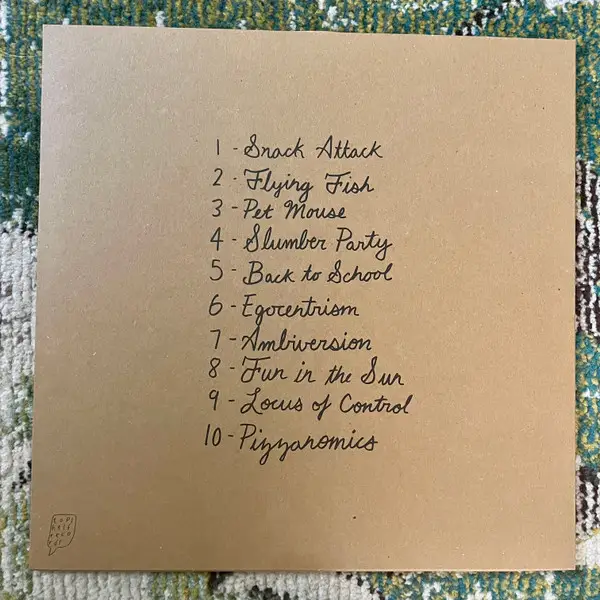 1 - Snack Attack
2 - Flying Fish
3 - Pet Mouse
4 - Slumber Party
5 - Back to School
6 - Egocentrism
7 - Ambiversion
8 - Fun in the Sun
9 - Locus of Control
10 - Pizzanomics